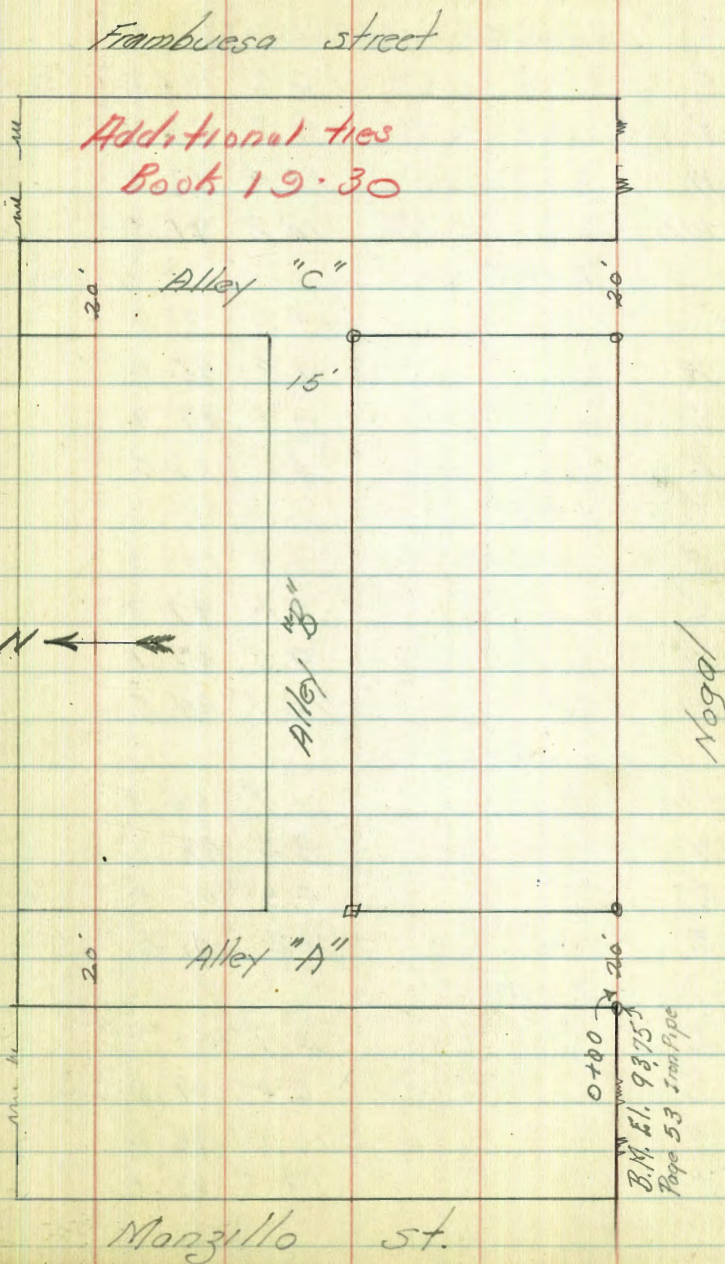 Frambuesa street
Additional ties
Book 19-30
Alley "C"
20'
20'
15'
Alley "B"
N
Nogal
Alley "A"
20'
20'
0+00
B.M. El. 93.75
Page 53 Iron Pipe
Manzillo st.